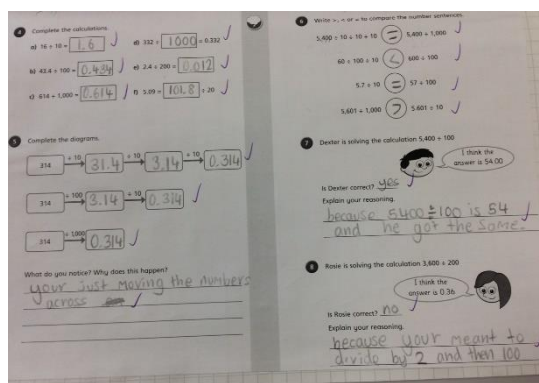 4 Complete the calculations.
a) 16 ÷ 10 = 1.6
d) 332 ÷ 1000 = 0.332
b) 43.4 ÷ 100 = 0.434
e) 2.4 ÷ 200 = 0.012
c) 614 ÷ 1,000 = 0.614
f) 5.09 = 101.8 ÷ 20
5 Complete the diagrams.
314 ÷ 10 31.4 ÷ 10 3.14 ÷ 10 0.314
314 ÷ 100 3.14 ÷ 10 0.314
314 ÷ 1,000 0.314
What do you notice? Why does this happen?
your just moving the numbers
across
6 Write >, < or = to compare the number sentences.
5,400 ÷ 10 ÷ 10 ÷ 10 = 5,400 ÷ 1,000
60 ÷ 100 ÷ 10 < 600 ÷ 100
5.7 ÷ 10 = 57 ÷ 100
5,601 ÷ 1,000 > 5.601 ÷ 10
7 Dexter is solving the calculation 5,400 ÷ 100
I think the
answer is 54.00
Is Dexter correct? yes
Explain your reasoning.
because 5400 ÷ 100 is 54
and he got the same.
8 Rosie is solving the calculation 3,600 ÷ 200
I think the
answer is 0.36
Is Rosie correct? no
Explain your reasoning.
because your meant to
divide by 2 and then 100